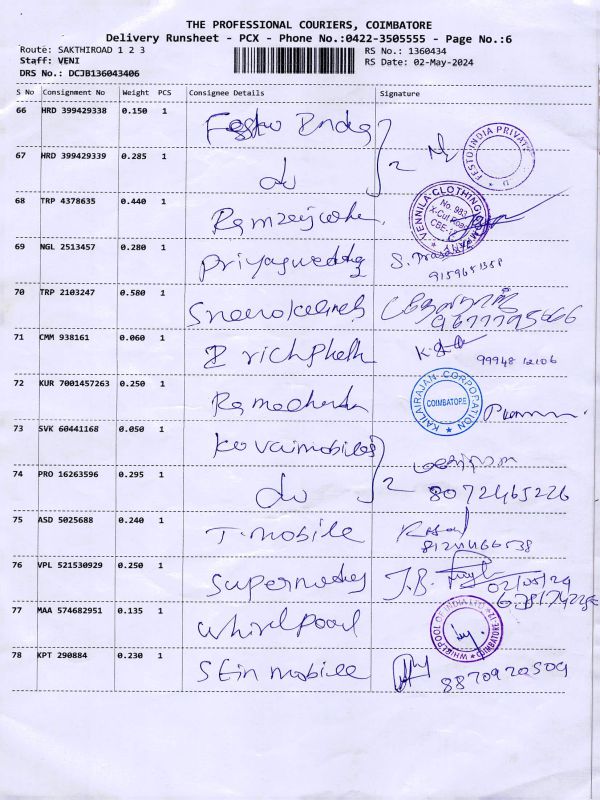 THE PROFESSIONAL COURIERS, COIMBATORE
Delivery Runsheet - PCX - Phone No.:0422-3505555 - Page No.:6
Route: SAKTHIROAD 1 2 3 RS No.: 1360434
Staff: VENI RS Date: 02-May-2024
DRS No.: DCJB136043406
S No Consignment No Weight PCS Consignee Details Signature
66 HRD 399429338 0.150 1 Festo India
67 HRD 399429339 0.285 1 do 2 FESTO INDIA PRIVATE
68 TRP 4378635 0.440 1 VENNILA CLOTHING COMPANY No. 983, X-Cut Road CBE-
69 NGL 2513457 0.280 1 Priyaawedding S. 9159651358
70 TRP 2103247 0.580 1 9677795666
71 CMM 938161 0.060 1 99948 12106
72 KUR 7001457263 0.250 1 KAILAIRAJAN CORPORATION COIMBATORE
73 SVK 60441168 0.050 1 Kovaimobiles
74 PRO 16263596 0.295 1 do 2 8072465226
75 ASD 5025688 0.240 1 T-mobile
76 VPL 521530929 0.250 1 J.B. 02/05/24
77 MAA 574682951 0.135 1 Whirlpool WHIRLPOOL OF INDIA LTD COIMBATORE
78 KPT 290884 0.230 1 mobile 8870920509